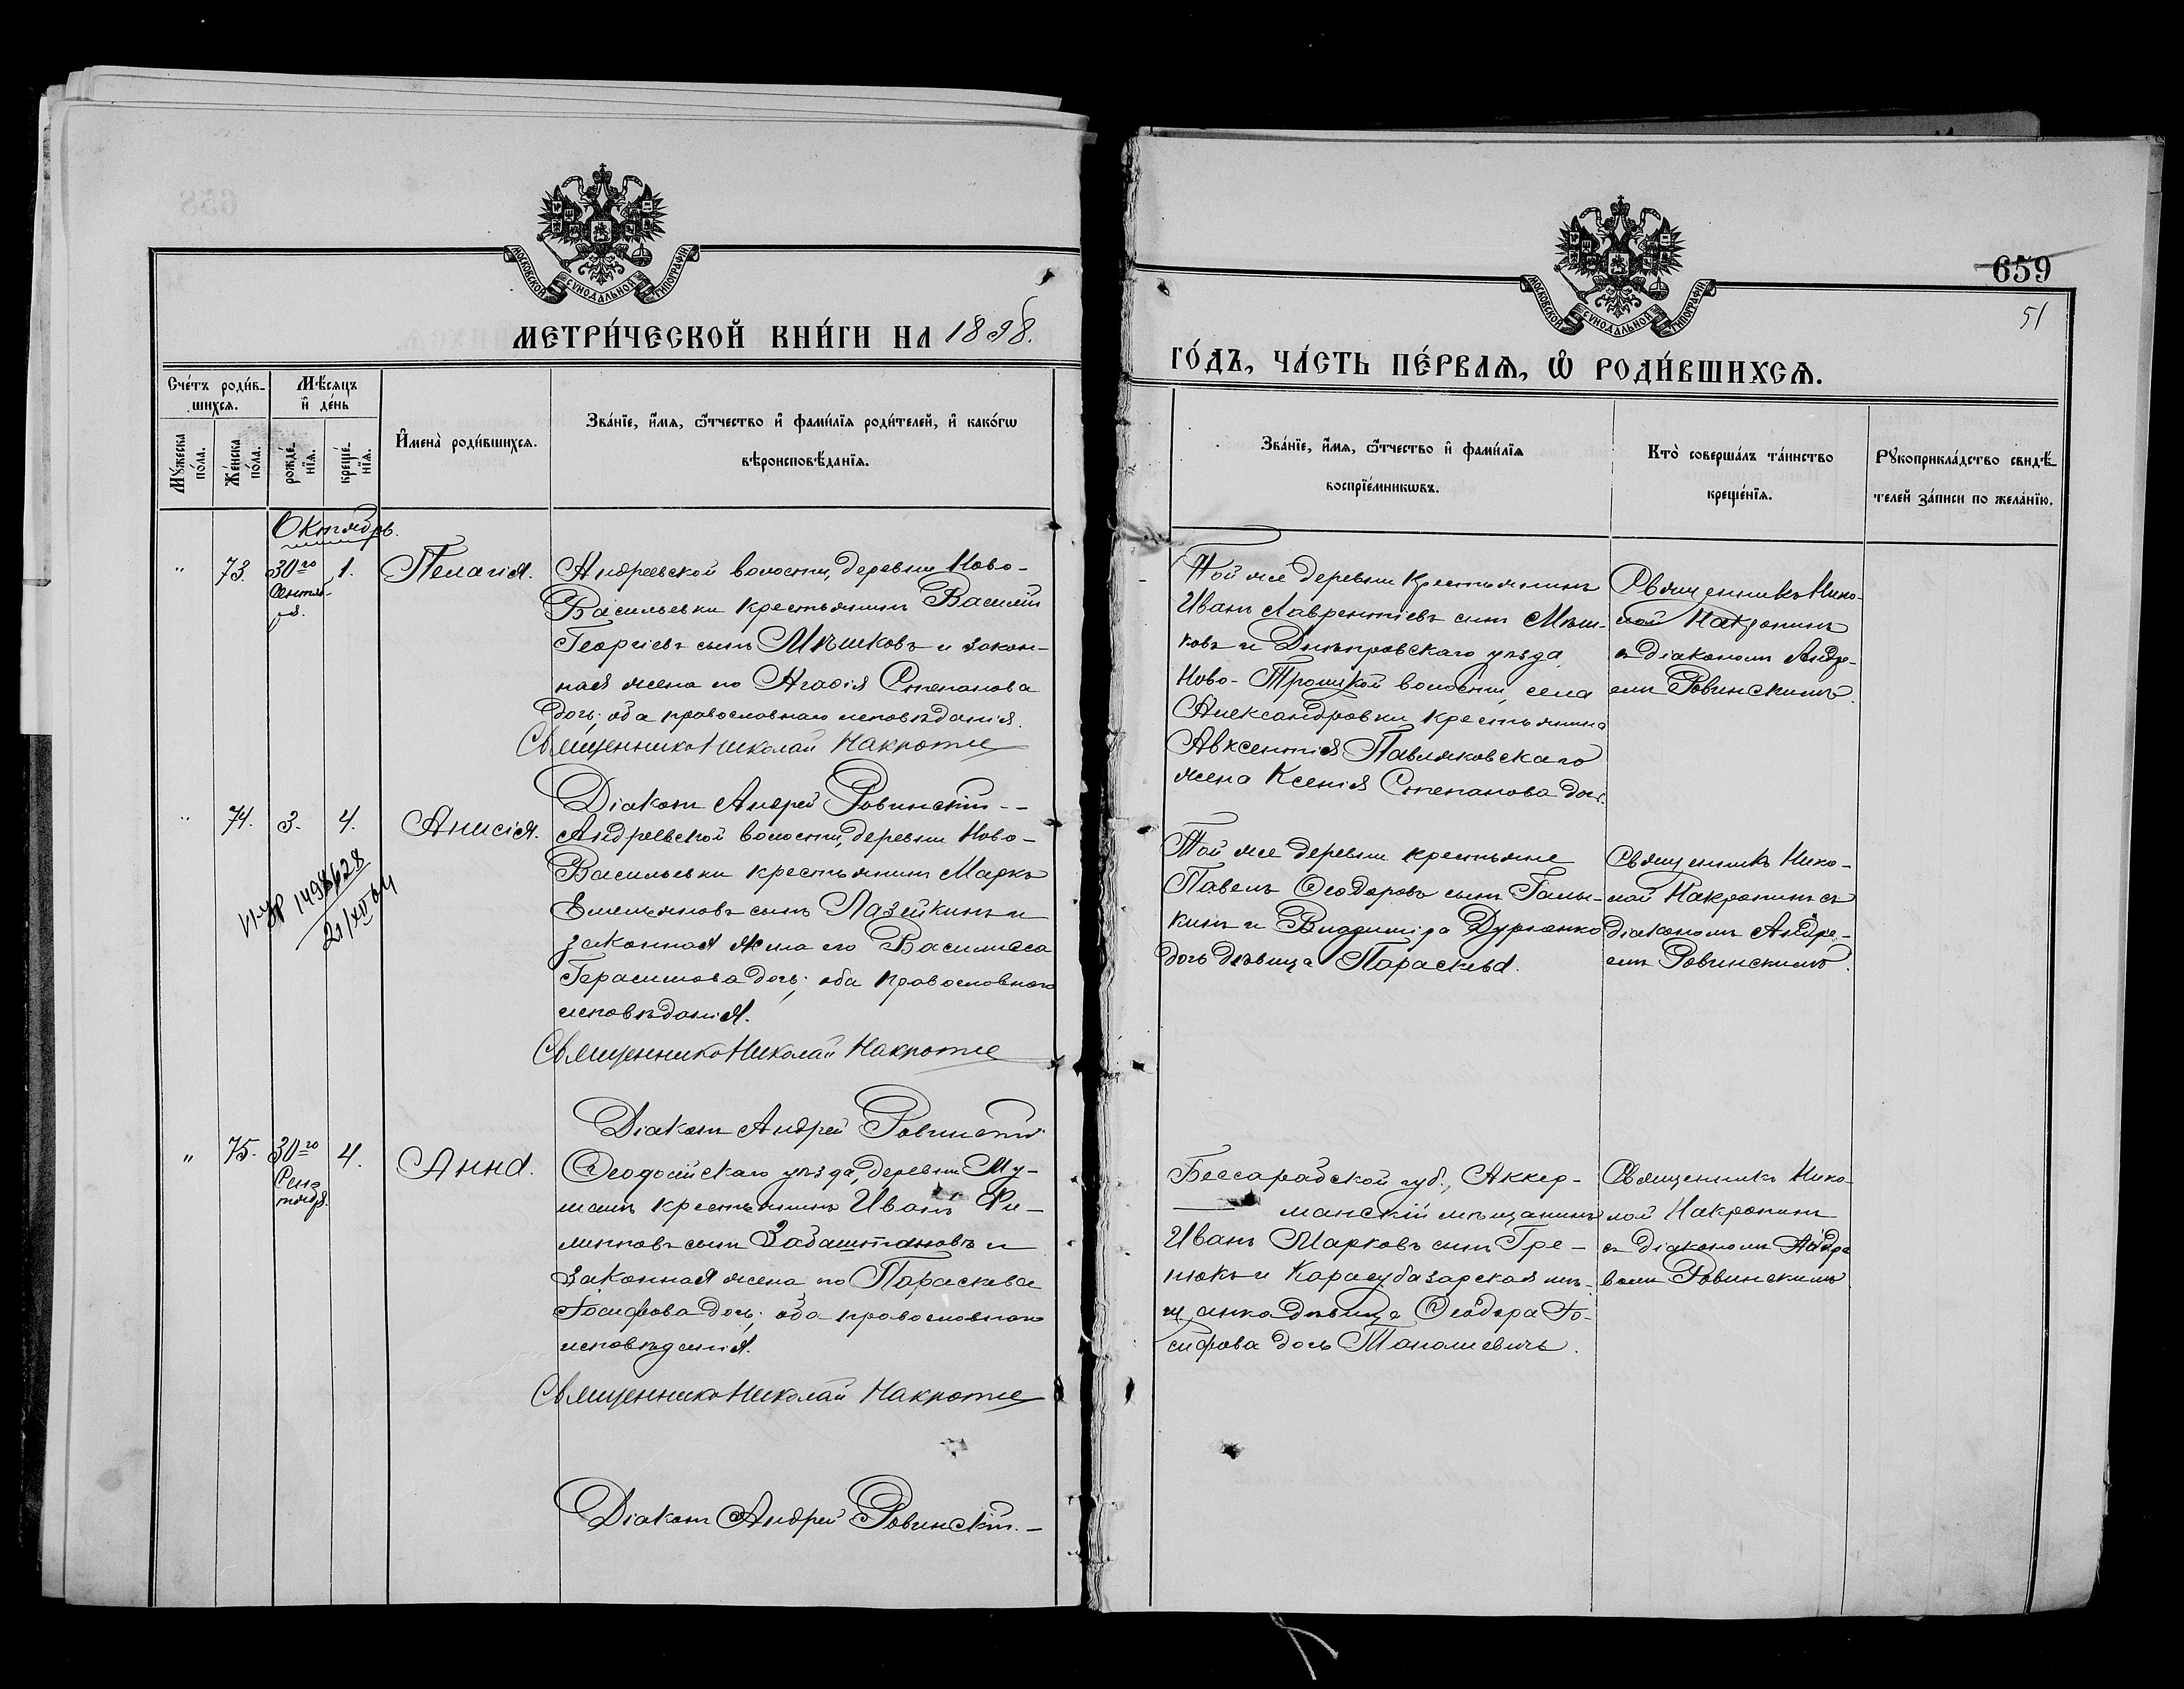 МОСКОВСКОЙ СѴНОДАЛЬНОЙ ТИПОГРАФІИ
МЕТРИ́ЧЕСКОЙ КНИ́ГИ НА 1898.
Сче́тъ роди́в-
шихсѧ.
Мѣ́сѧцъ
и҆ де́нь
Мꙋ́жеска
по́ла.
Же́нска
по́ла.
рожде́-
нїѧ.
креще́-
нїѧ.
И҆мена̀ роди́вшихсѧ.
Зва́нїе, и҆́мѧ, ѻ҆́тчество и҆ фами́лїѧ роди́телей, и҆ како́гѡ
вѣроисповѣ́данїѧ.
Октябрь.
"
73.
30го
Сентяб-
ря.
1.
Пелагія.
Андреевской волости, деревни Ново-
Васильевки крестьянинъ Василій
Георгіевъ сынъ Мѣшковъ и закон-
ная жена его Агафія Степанова
дочь; оба православнаго исповѣданія.
Священникъ Николай Накропинъ
Діаконъ Андрей Ровинскій --
"
74.
3.
4.
Анисія.
Андреевской волости, деревни Ново-
Васильевки крестьянинъ Маркъ
Емельяновъ сынъ Лазейкинъ и
законная жена его Василиса
Герасимова дочь; оба православнаго
исповѣданія.
Священникъ Николай Накропинъ
Діаконъ Андрей Ровинскій
"
75.
30го
Сен-
тября.
4.
Анна.
Ѳеодосійскаго уѣзда, деревни Му-
крестьянинъ Иванъ Фи-
липповъ сынъ Забаштановъ и
законная жена его Параскева
Іосифова дочь; оба православнаго
исповѣданія.
Священникъ Николай Накропинъ
Діаконъ Андрей Ровинскій. -
659
51
МОСКОВСКОЙ СѴНОДАЛЬНОЙ ТИПОГРАФІИ
ГО́ДЪ, ЧА́СТЬ ПЕ́РВАѦ, Ѡ҆ РОДИ́ВШИХСѦ.
Зва́нїе, и҆́мѧ, ѻ҆́тчество и҆ фами́лїѧ
воспрїе́мникѡвъ.
Кто̀ соверша́лъ та́инство
креще́нїѧ.
Рꙋкоприкла́дство свидѣ́-
телей за́писи по жела́нїю.
Той же деревни крестьянинъ
Иванъ Лаврентіевъ сынъ Мѣш-
ковъ и Днѣпровскаго уѣзда,
Ново-Троицкой волости, села
Александровки, крестьянина
Авксентія Павляковскаго
жена Ксенія Степанова дочь.
Священникъ Нико-
лай Накропинъ
съ діакономъ Андре-
емъ Ровинскимъ.
Той же деревни крестьяне
Павелъ Ѳеодоровъ сынъ Галы-
кинъ и Владиміра
дочь дѣвица Параскева.
Священникъ Нико-
лай Накропинъ съ
діакономъ Андре-
емъ Ровинскимъ.
Бессарабской губ., Аккер-
манскій мѣщанинъ
Иванъ Марковъ сынъ Гре-
нюкъ и Карасубазарская мѣ-
щанка дѣвица Ѳеодора Іо-
сифова дочь
Священникъ Нико-
лай Накропинъ
съ діакономъ Андре
емъ Ровинскимъ